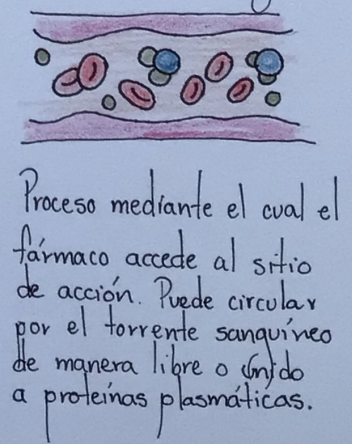 Proceso mediante el cual el
fármaco accede al sitio
de acción. Puede circular
por el torrente sanguíneo
de manera libre o unido
a proteínas plasmáticas.